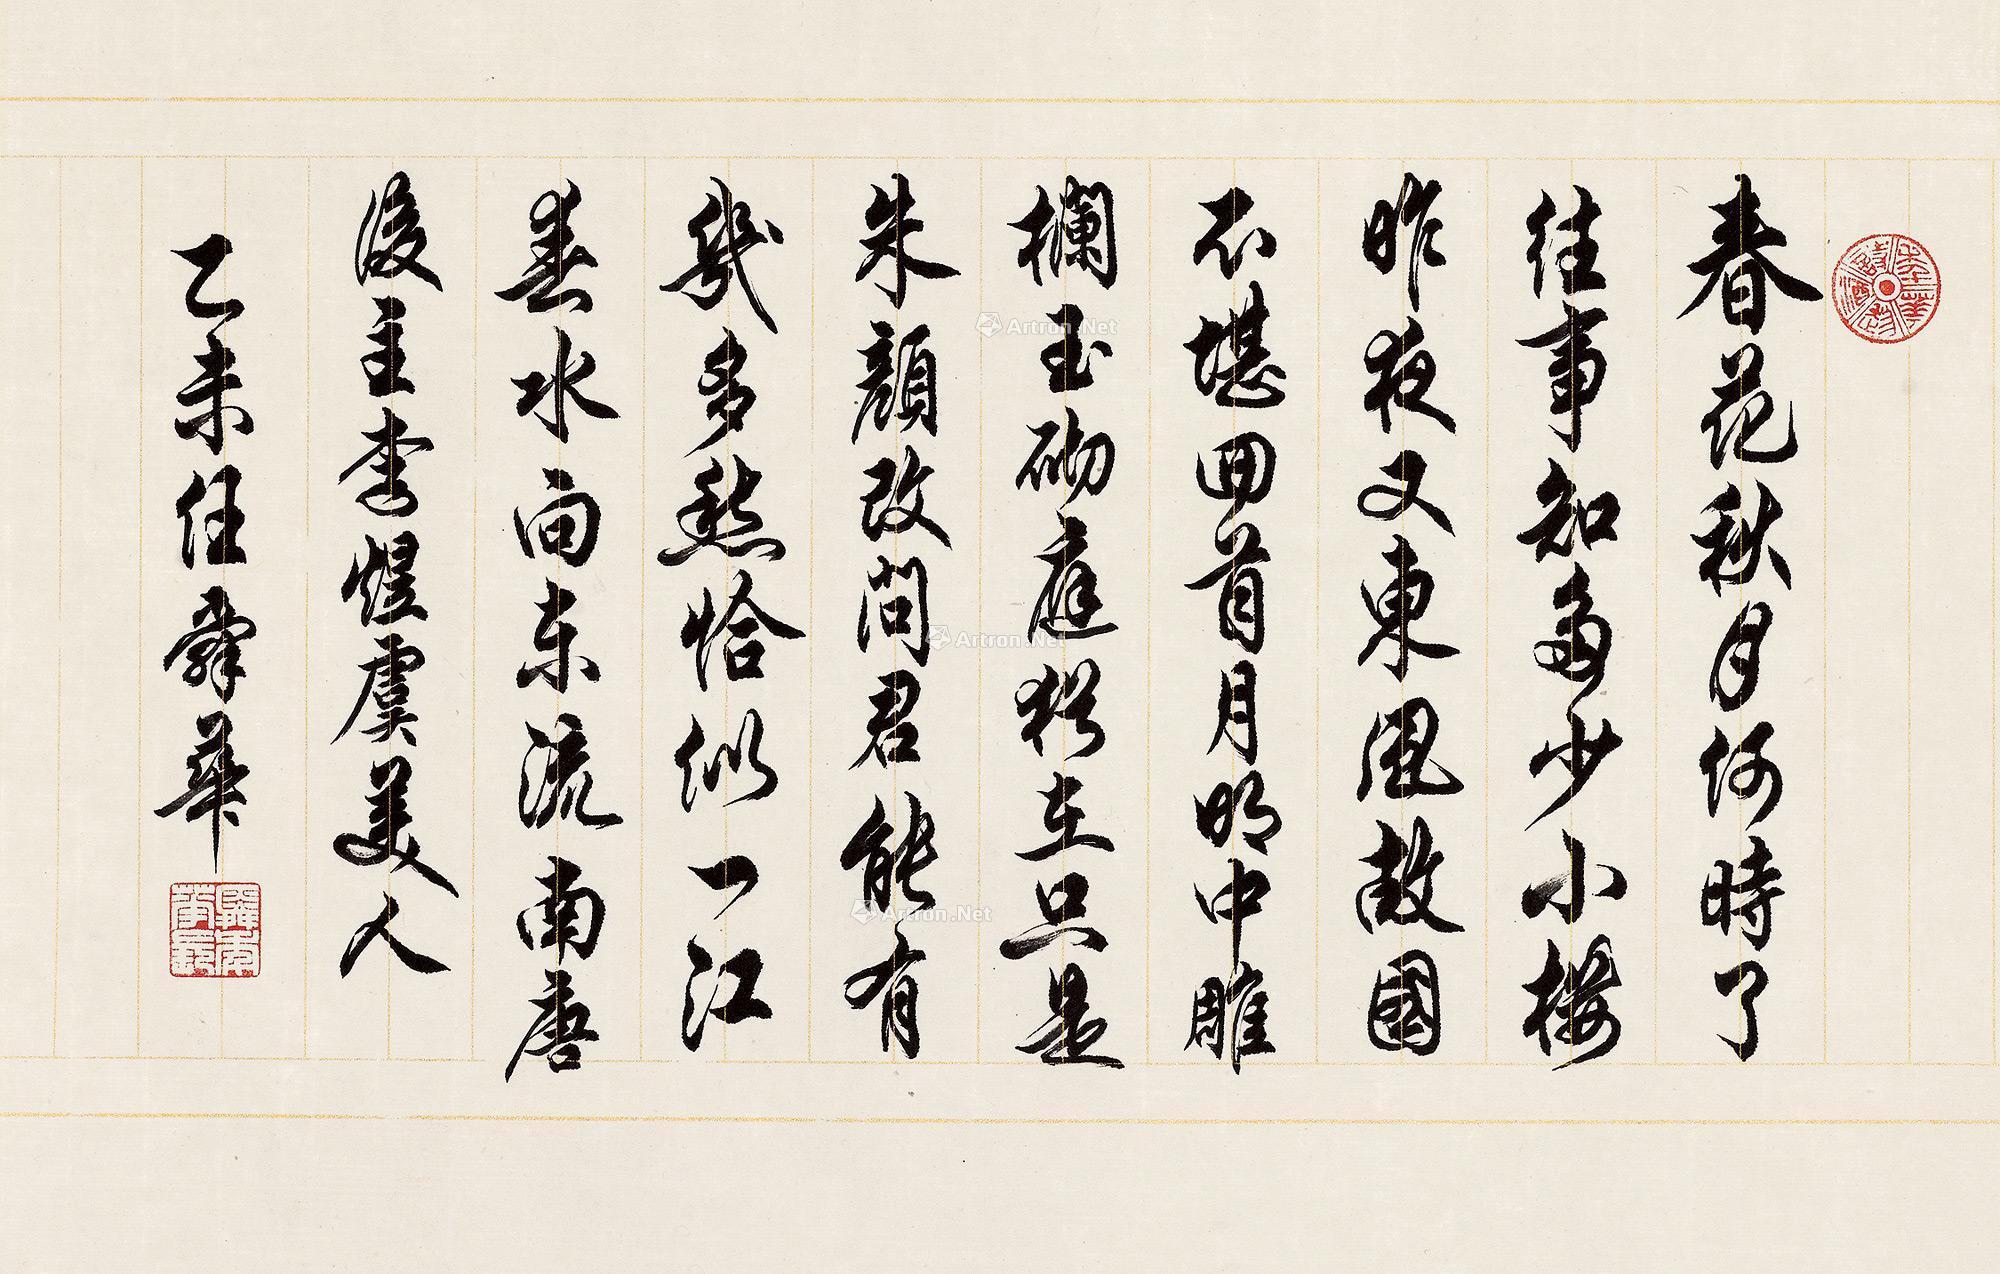 春花秋月何時了
往事知多少小樓
昨夜又東風故國
不堪回首月明中雕
欄玉砌庭猶在只是
朱顏改問君能有
幾多愁恰似一江
春水向东流南唐
後主李煜虞美人
乙未任舜華
Artron.Net
Artron.Net
Artron.Net